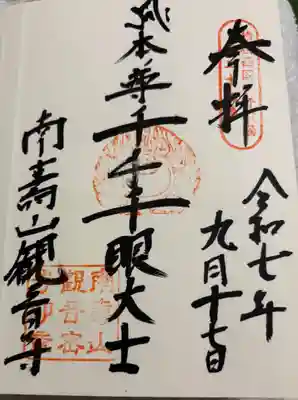 奉拝
令和七年
九月十七日
本尊千手千眼大士
南寿山観音寺